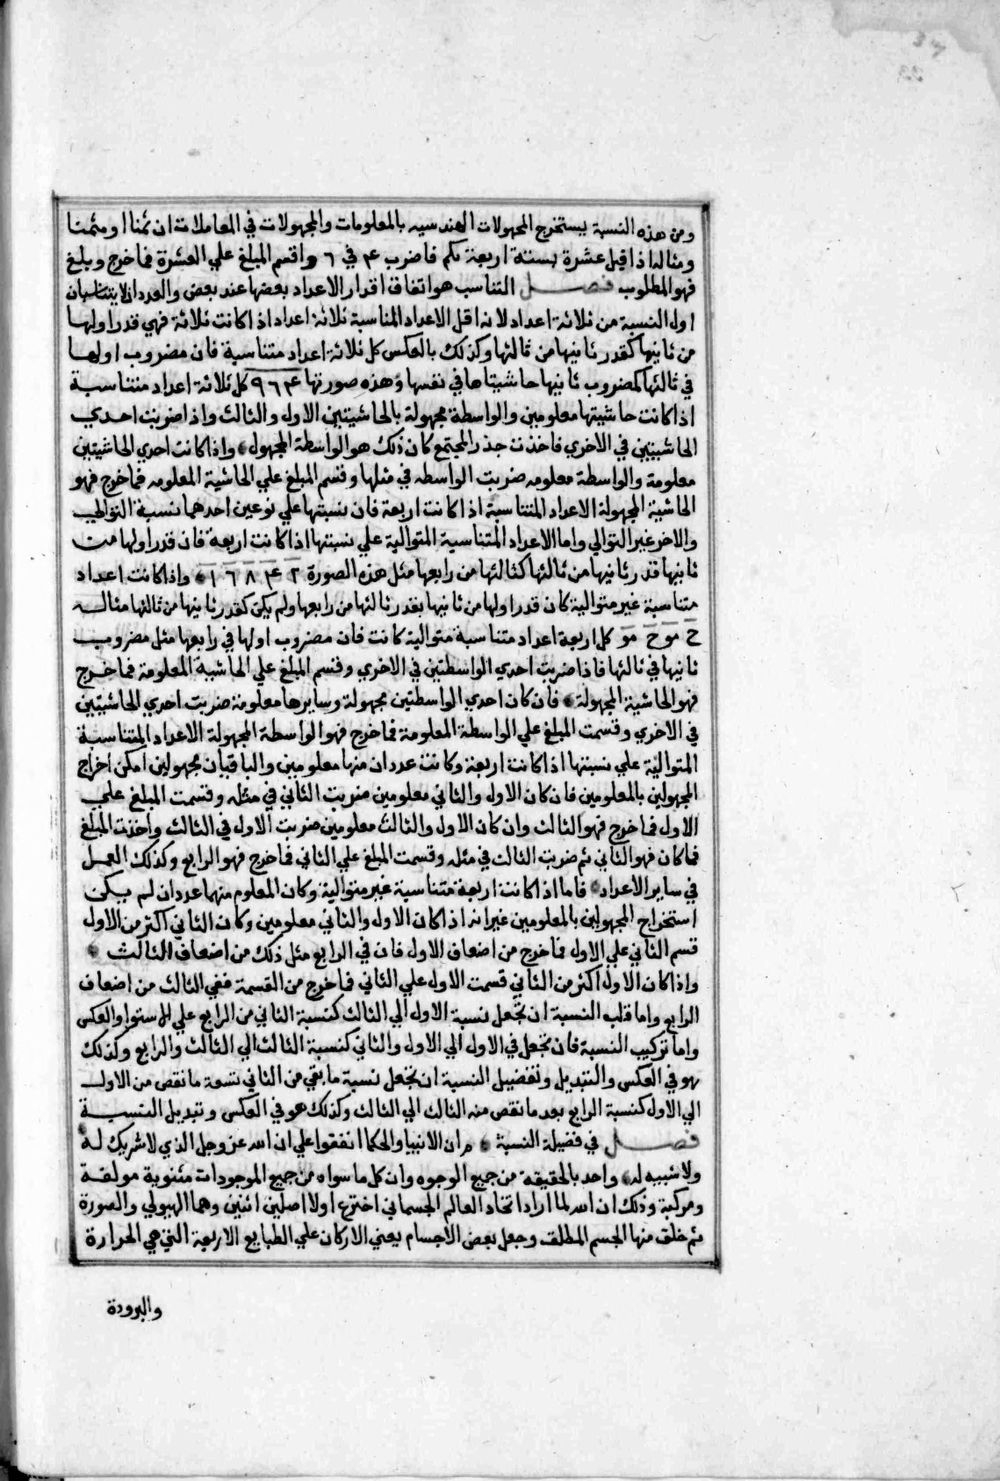 ومن هذه النسبة يستخرج المجهولات الهندسيه بالمعلومات والمجهولات في المعاملات ان ثمنا او مثمنا
ومثاله اذا قيل عشرة بستة اربعة بكم فاضرب ۴ في ٦ واقسم المبلغ علي العشرة فما خرج وبلغ
فهو المطلوب فصل التناسب هو اتفاق اقدار الاعداد بعضها عند بعض والعددان لا يتناسبان
اول النسبة من ثلاثة اعداد لانه اقل الاعداد المناسبة ثلاثة اعداد اذا كانت ثلاثة فهي قدر اولها
من ثانيها كقدر ثانيها من ثالثها وكذلك بالعكس كل ثلاثة اعداد متناسبة فان مضروب اولها
في ثالثها كمضروب ثانيها حاشيتاها في نفسها وهذه صورتها ۴ ٦ ٩ كل ثلاثة اعداد متناسبة
اذا كانت حاشيتها معلومين والواسطة مجهولة بالحاشيتين الاول والثالث واذا ضربت احدي
الحاشيتين في الاخري فاخذت جذر المجتمع كان ذلك هو الواسطة المجهول واذا كانت احدي الحاشيتين
معلومة والواسطة معلومه ضربت الواسطه في مثلها وقسم المبلغ علي الحاشية المعلومه فما خرج فهو
الحاشية المجهولة الاعداد المتناسبة اذا كانت اربعة فان نسبتها علي نوعين احدهما نسبة التوالي
والاخر غير التوالي واما الاعداد المتناسبة المتوالية علي نسبتها اذا كانت اربعة فان قدر اولها من
ثانيها قدر ثانيها من ثالثها كثالثها من رابعها مثل هذه الصورة ٢ ۴ ٨ ١٦ واذا كانت اعداد
متناسبة غير متوالية كان قدر اولها من ثانيها بقدر ثالثها من رابعها ولم يكن كقدر ثانيها من ثالثها مثاله
ح مو ح مو كل اربعة اعداد متناسبة متوالية كانت فان مضروب اولها في رابعها مثل مضروب
ثانيها في ثالثها فاذا ضربت احدي الواسطتين في الاخري وقسم المبلغ علي الحاشية المعلومة فما خرج
فهو الحاشية المجهولة فان كان احدي الواسطتين مجهولة وسايرها معلومة ضربت احدي الحاشيتين
في الاخري وقسمت المبلغ علي الواسطة المعلومة فما خرج فهو الواسطة المجهولة الاعداد المتناسبة
المتوالية علي نسبتها اذا كانت اربعة وكانت عددان منها معلومين والباقيان مجهولين امكن اخراج
المجهولين بالمعلومين فان كان الاول والثاني معلومين ضربت الثاني في مثله وقسمت المبلغ علي
الاول فما خرج فهو الثالث وان كان الاول والثالث معلومين ضربت الاول في الثالث واخذت المبلغ
فما كان فهو الثاني ثم ضربت الثالث في مثله وقسمت المبلغ علي الثاني فما خرج فهو الرابع وكذلك العمل
في ساير الاعداد فاما اذا كانت اربعة متناسبة غير متوالية وكان المعلوم منهما عددان لم يمكن
استخراج المجهولين بالمعلومين غير انه اذا كان الاول والثاني معلومين وكان الثاني اكثر من الاول
قسم الثاني علي الاول فما خرج من اضعاف الاول فان في الرابع مثل ذلك من اضعاف الثالث
واذا كان الاول اكثر من الثاني قسمت الاول علي الثاني فما خرج من القسمة ففي الثالث من اضعاف
الرابع واما قلب النسبة ان تجعل نسبة الاول الي الثالث كنسبة الثاني من الرابع علي الاستوا والعكس
واما تركيب النسبة فان تجعل في الاول الي الاول والثاني كنسبة الثالث الي الثالث والرابع وكذلك
هو في العكس والتبديل وتفضيل النسبة ان تجعل نسبة ما بقي من الثاني نسعة ما نقص من الاول
الي الاول كنسبة الرابع بعد ما نقص منه الثالث الي الثالث وكذلك هو في العكس وتبديل النسبة
فصل في فضيلة النسبة ان الانبيا والحكما اتفقوا علي ان الله عز وجل الذي لا شريك له
ولا شبيه له واحد بالحقيقة من جميع الوجوه وان كل ما سواه من جميع الموجودات مثنوية مولفة
ومركبة وذلك ان الله لما اراد اتحاد العالم الجسماني اخترع اولا اصلين اثنين وهما الهيولي والصورة
ثم خلق منها الجسم المطلق وجعل بعض الاجسام يعني الاركان علي الطبايع الاربعة التي هي الحرارة
والبرودة